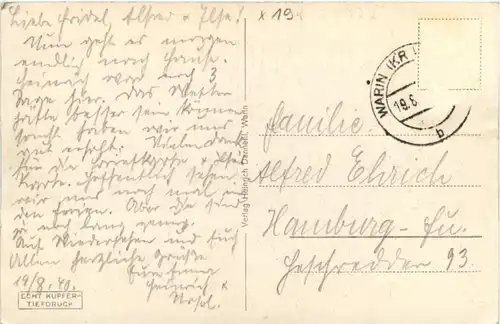 Liebe Friedel, Alfred & Ilse!
Nun geht es morgen
endlich nach Hause.
Heinrich war noch 3
Tage hier. Das Wetter
hätte besser sein können
sonst haben wir uns
gut erholt. Vielen Dank
für die Briefkarte & Ilses
Karte. Hoffentlich sehen
wir uns noch mal in
den Ferien. Aber die sind
ja noch lang genug.
Auf Wiedersehen und Euch
Allen herzliche Grüße
Eure Anna
Heinrich &
19/8. 40.
ECHT KUPFER-
TIEFDRUCK
Verlag Heinrich Dennehl, Warin
x 19
WARIN (KR
19.8
b
Familie
Alfred Ehrich
Hamburg-Fu.
93.